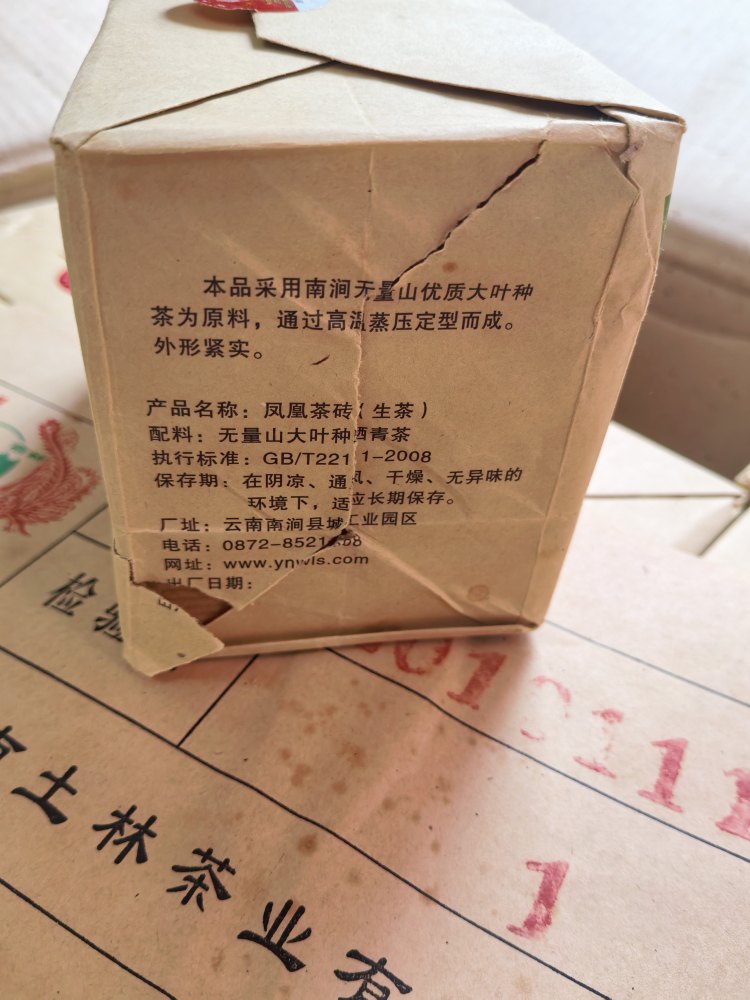 本品采用南涧无量山优质大叶种
茶为原料，通过高温蒸压定型而成。
外形紧实。
产品名称：凤凰茶砖(生茶)
配料：无量山大叶种晒青茶
执行标准：GB/T221 1-2008
保存期：在阴凉、通风、干燥、无异味的
环境下，适应长期保存。
厂址：云南南涧县城工业园区
电话：0872-8521
网址：www.ynwls.com
出厂日期：
检验
土林茶业有
1